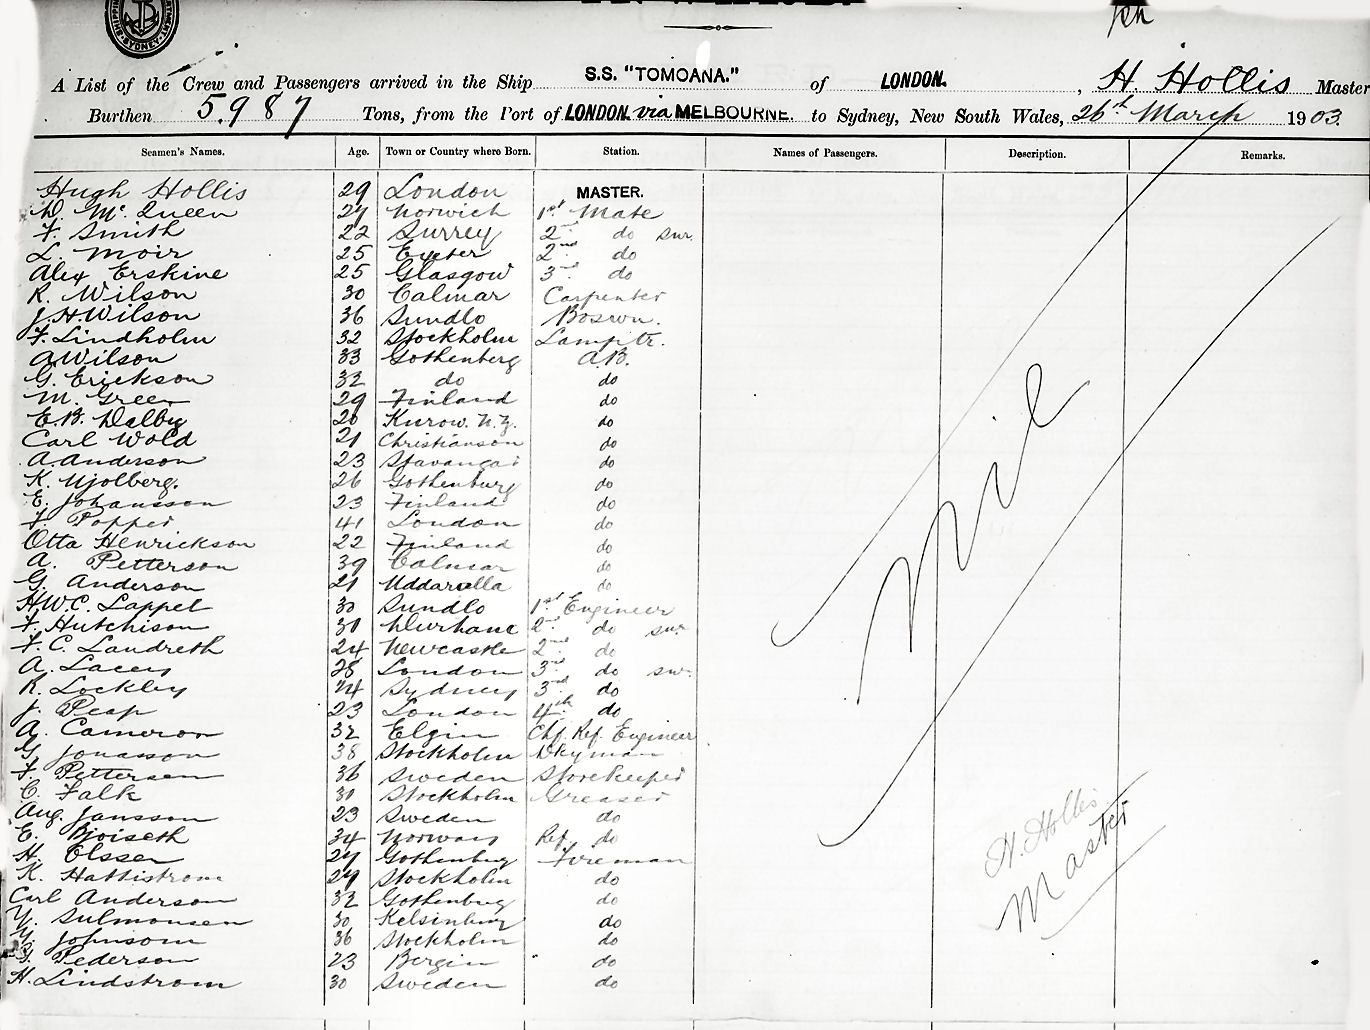 A List of the Crew and Passengers arrived in the Ship S.S. "TOMOANA." of LONDON. , H. Hollis Master
Burthen 5,987 Tons, from the Port of LONDON via MELBOURNE. to Sydney, New South Wales, 26th March 1903.
Seamen's Names. Age. Town or Country where Born. Station. Names of Passengers. Description. Remarks.
Hugh Hollis 29 London MASTER.
D. McQueen 27 Norwich 1st Mate
F. Smith 22 Surrey 2nd do Snr.
L. Moir 25 Exeter 2nd do
Alex Erskine 25 Glasgow 3rd do
R. Wilson 30 Calmar Carpenter
J. H. Wilson 36 Sundlo Boswn.
F. Lindholm 32 Stockholm Lamptr.
A Wilson 33 Gothenberg A.B.
G. Erickson 32 do do
M. Green 29 Finland do
E. B. Dalby 20 Kurow. N.Z. do
Carl Wold 21 Christianson do
A. Anderson 23 Stavanger do
K. Njolberg. 26 Gothenburg do
E. Johansson 23 Finland do
F. Popper 41 London do
Otta Henrickson 22 Finland do
A. Petterson 39 Calmar do
G. Anderson 21 Uddavalla do
H.W.C. Lappel 30 Sundlo 1st Engineer
F. Hutchison 30 2nd do snr
F. C. Landreth 24 Newcastle 2nd do
A. Lacey 28 London 3rd do snr.
R. Lockley 24 Sydney 3rd do
J. Peap 23 London 4th do
A. Cameron 32 Elgin Chf. Ref. Engineer
G. Jonasson 38 Stockholm Dkyman
F. Pettersen 36 Sweden Storekeeper
C. Falk 30 Stockholm Greaser
Aug. Jansson 23 Sweden do
E. Bjoiseth 34 Norway Ref. do
H. Olssen 27 Gothenburg Fireman
K. Hattistrom 29 Stockholm do
Carl Anderson 32 Gothenburg do
Sulmonsen 30 Helsinburg do
Johnsom 36 Stockholm do
Pederson 23 Bergin do
H. Lindstrom 30 Sweden do
Nil
H. Hollis
Master